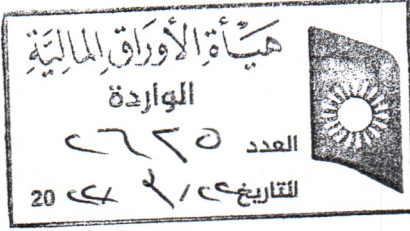 هيأة الأوراق المالية
الواردة
العدد ٢٦٢٥
التاريخ ٢٢ 20